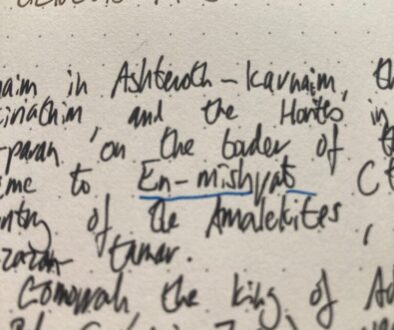 GENESIS
aim in Ashteroth-karnaim, th
iriathim and the Horites in
-paran on the border of t
ame to En-mishpat (t
ntry of the Amalekites,
zazon-tamar.
Gomorrah, the king of Ad